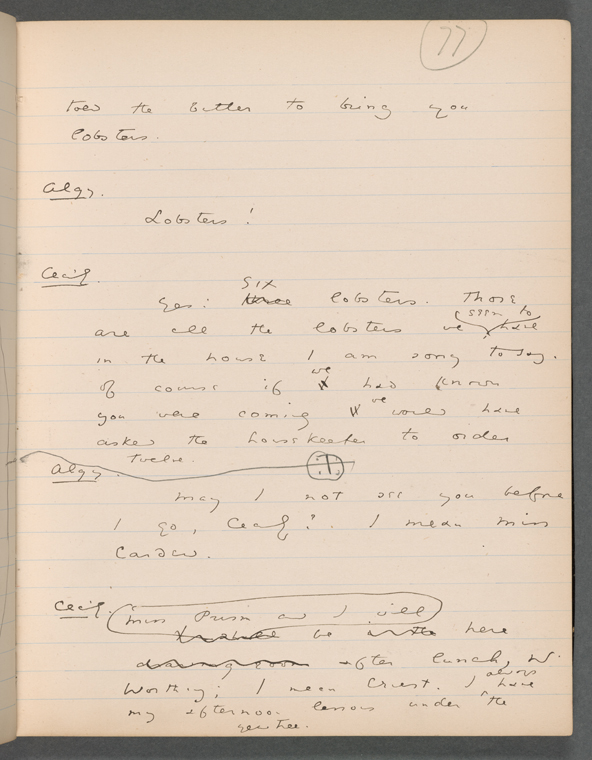 77
told the butler to bring you
lobsters.
Algy.
Lobsters!
Cecily.
six
Yes: three lobsters. Those
seem to
are all the lobsters we have
in the house I am sorry to say.
we
Of course if I had known
we
you were coming I would have
asked the housekeeper to order
twelve.
Algy.
May I not see you before
I go, Cecily? I mean Miss
Cardew.
Cecily.
Miss Prism and I will
be in the here
drawing room after lunch, Mr.
always
Worthing; I mean Ernest. I have
my afternoon lessons under the
yew tree.